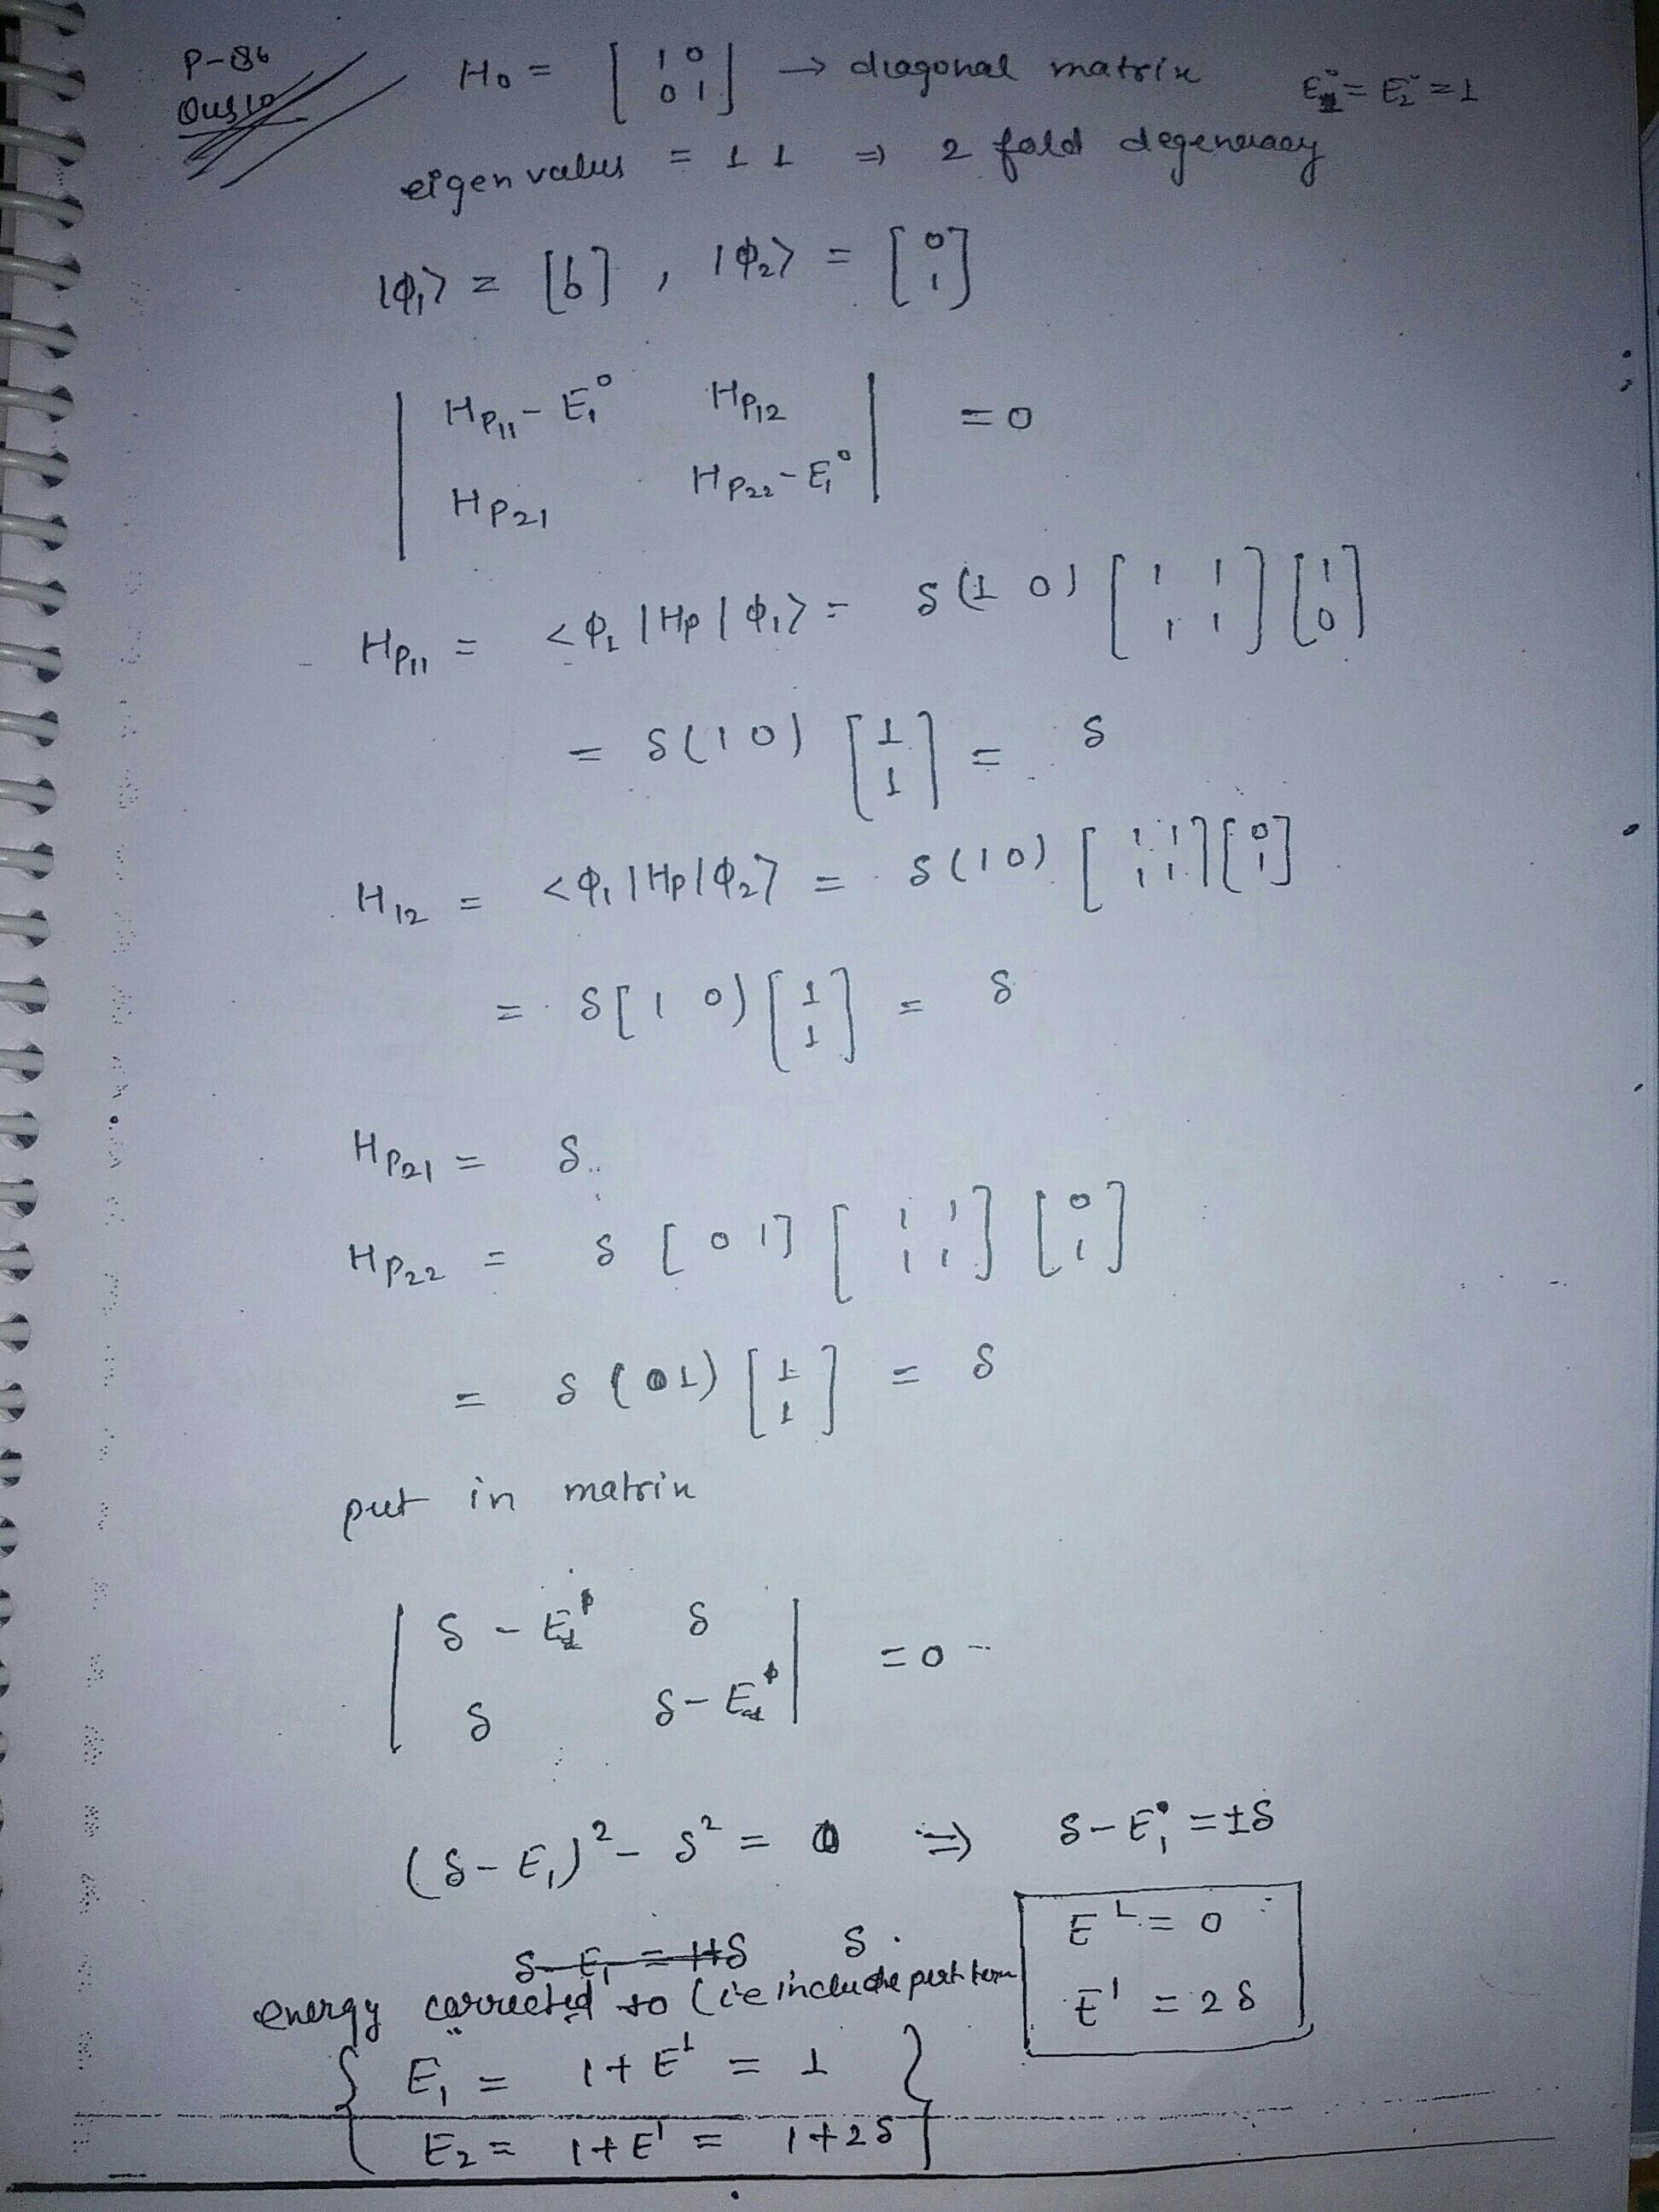 P-86
Qus10
H₀ = [1 0; 0 1] → diagonal matrix E₁⁰ = E₂⁰ = 1
eigen values = 1 1 ⇒ 2 fold degeneracy
|ϕ₁⟩ = [1; 0] , |ϕ₂⟩ = [0; 1]
| Hp₁₁ - E₁⁰ Hp₁₂ |
| Hp₂₁ Hp₂₂ - E₁⁰ | = 0
Hp₁₁ = <ϕ₁|Hp|ϕ₁> = δ(1 0) [1 1; 1 1] [1; 0]
= δ(1 0) [1; 1] = δ
H₁₂ = <ϕ₁|Hp|ϕ₂> = δ(1 0) [1 1; 1 1] [0; 1]
= δ[1 0) [1; 1] = δ
Hp₂₁ = δ
Hp₂₂ = δ [0 1] [1 1; 1 1] [0; 1]
= δ (0 1) [1; 1] = δ
put in matrix
| δ - E₁ᵖ δ |
| δ δ - E₁ᵖ | = 0
(δ - E₁)² - δ² = 0 ⇒ δ - E₁⁰ = ±δ
E¹ = 0
E¹ = 2δ
energy corrected to (i.e include pert term
{ E₁ = 1 + E¹ = 1 }
{ E₂ = 1 + E¹ = 1 + 2δ }